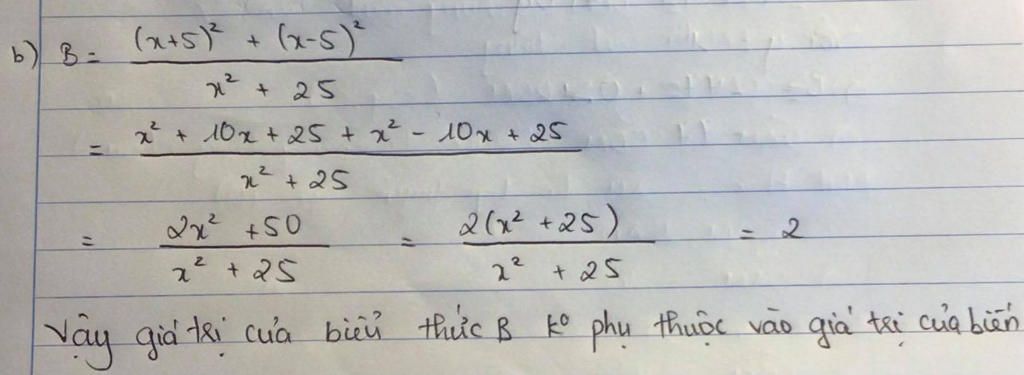 b) B = (x+5)² + (x-5)²
x² + 25
= x² + 10x + 25 + x² - 10x + 25
x² + 25
= 2x² + 50 = 2(x² + 25) = 2
x² + 25 x² + 25
Vậy giá trị của biểu thức B ko phụ thuộc vào giá trị của biến